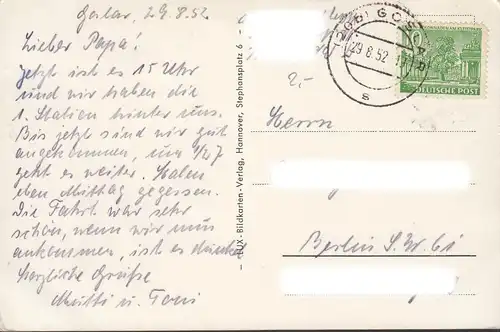 Goslar, 29.8.52
Lieber Papa!
Jetzt ist es 15 Uhr
und wir haben die
1. Station hinter uns.
Bis jetzt sind wir gut
angekommen, um 1/2 7
geht es weiter. Haben
eben Mittag gegessen.
Die Fahrt war sehr
schön, wenn wir nun
ankommen, ist es dunkel
Herzliche Grüße
Mutti u. Toni
LUX-Bildkarten-Verlag, Hannover, Stephansplatz 6
2,-
29.8.52
s
DEUTSCHE POST
Herrn
Berlin S.W. 61